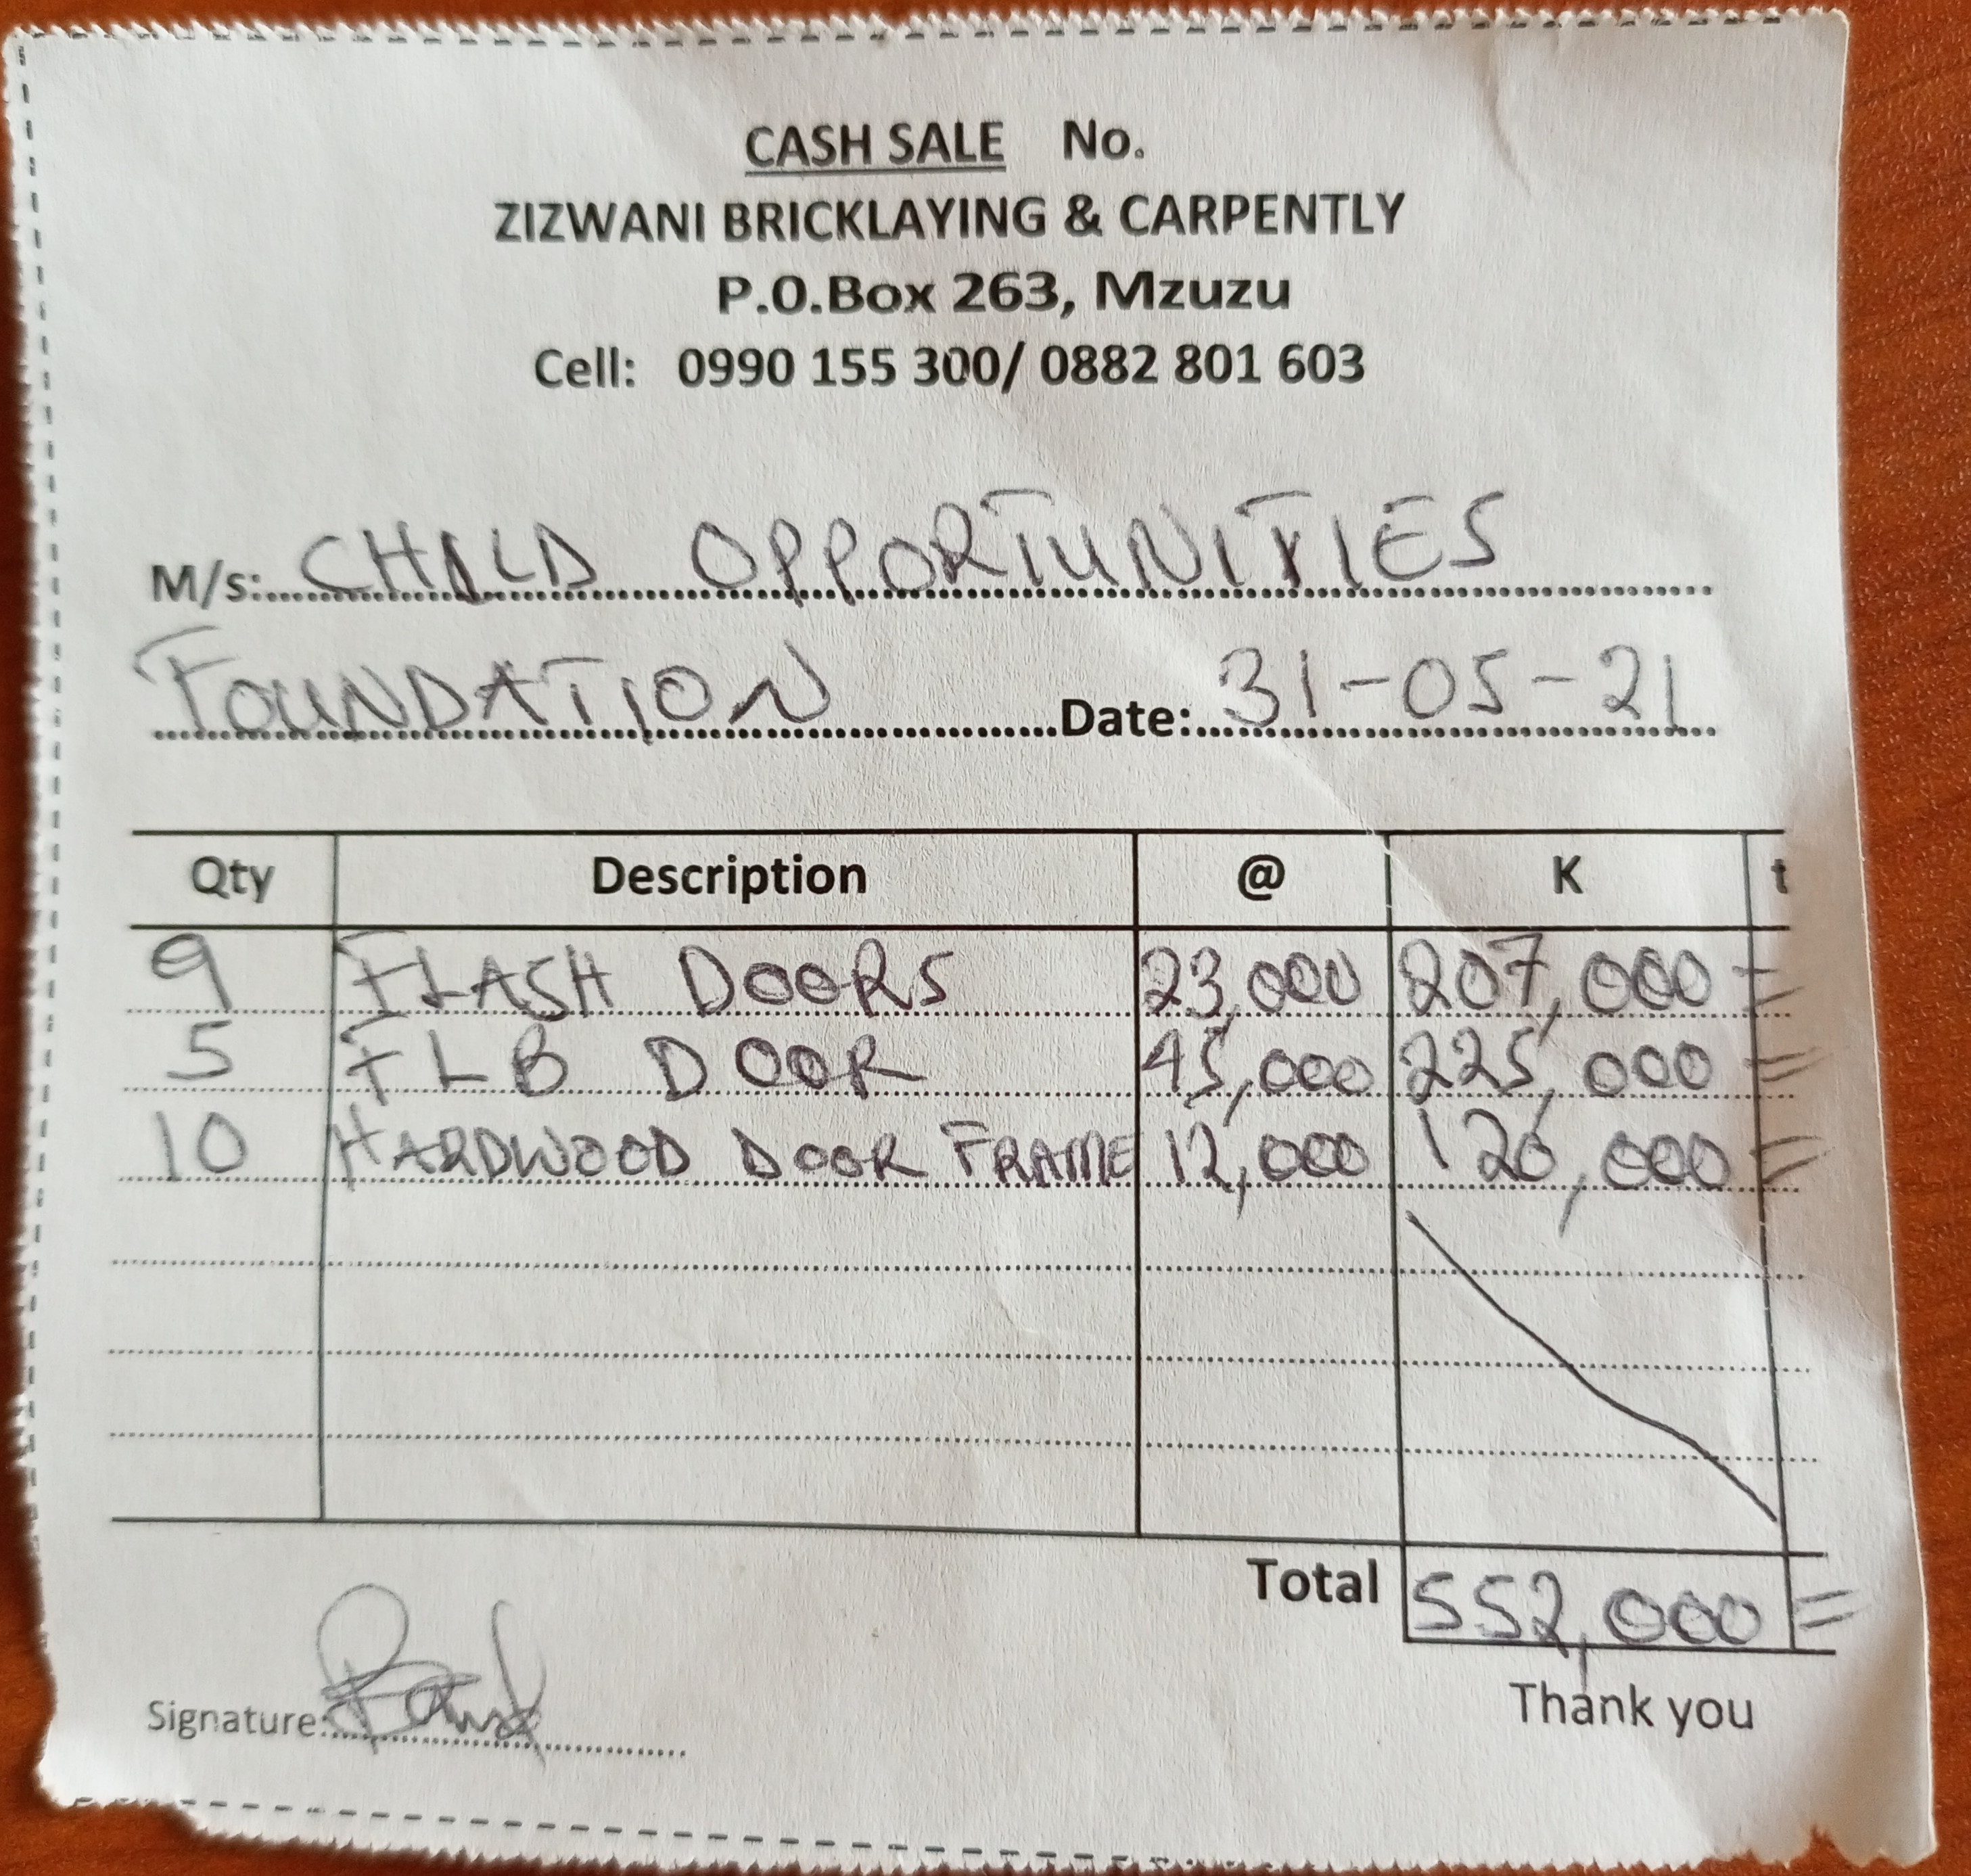 CASH SALE No.
ZIZWANI BRICKLAYING & CARPENTLY
P.O.Box 263, Mzuzu
Cell: 0990 155 300/ 0882 801 603
M/s: CHILD OPPORTUNITIES
FOUNDATION Date: 31-05-21
Qty Description @ K t
9 FLASH DOORS 23,000 207,000 =
5 FLB DOOR 45,000 225,000 =
10 HARDWOOD DOOR FRAME 12,000 120,000 =
Total 552,000 =
Signature:
Thank you